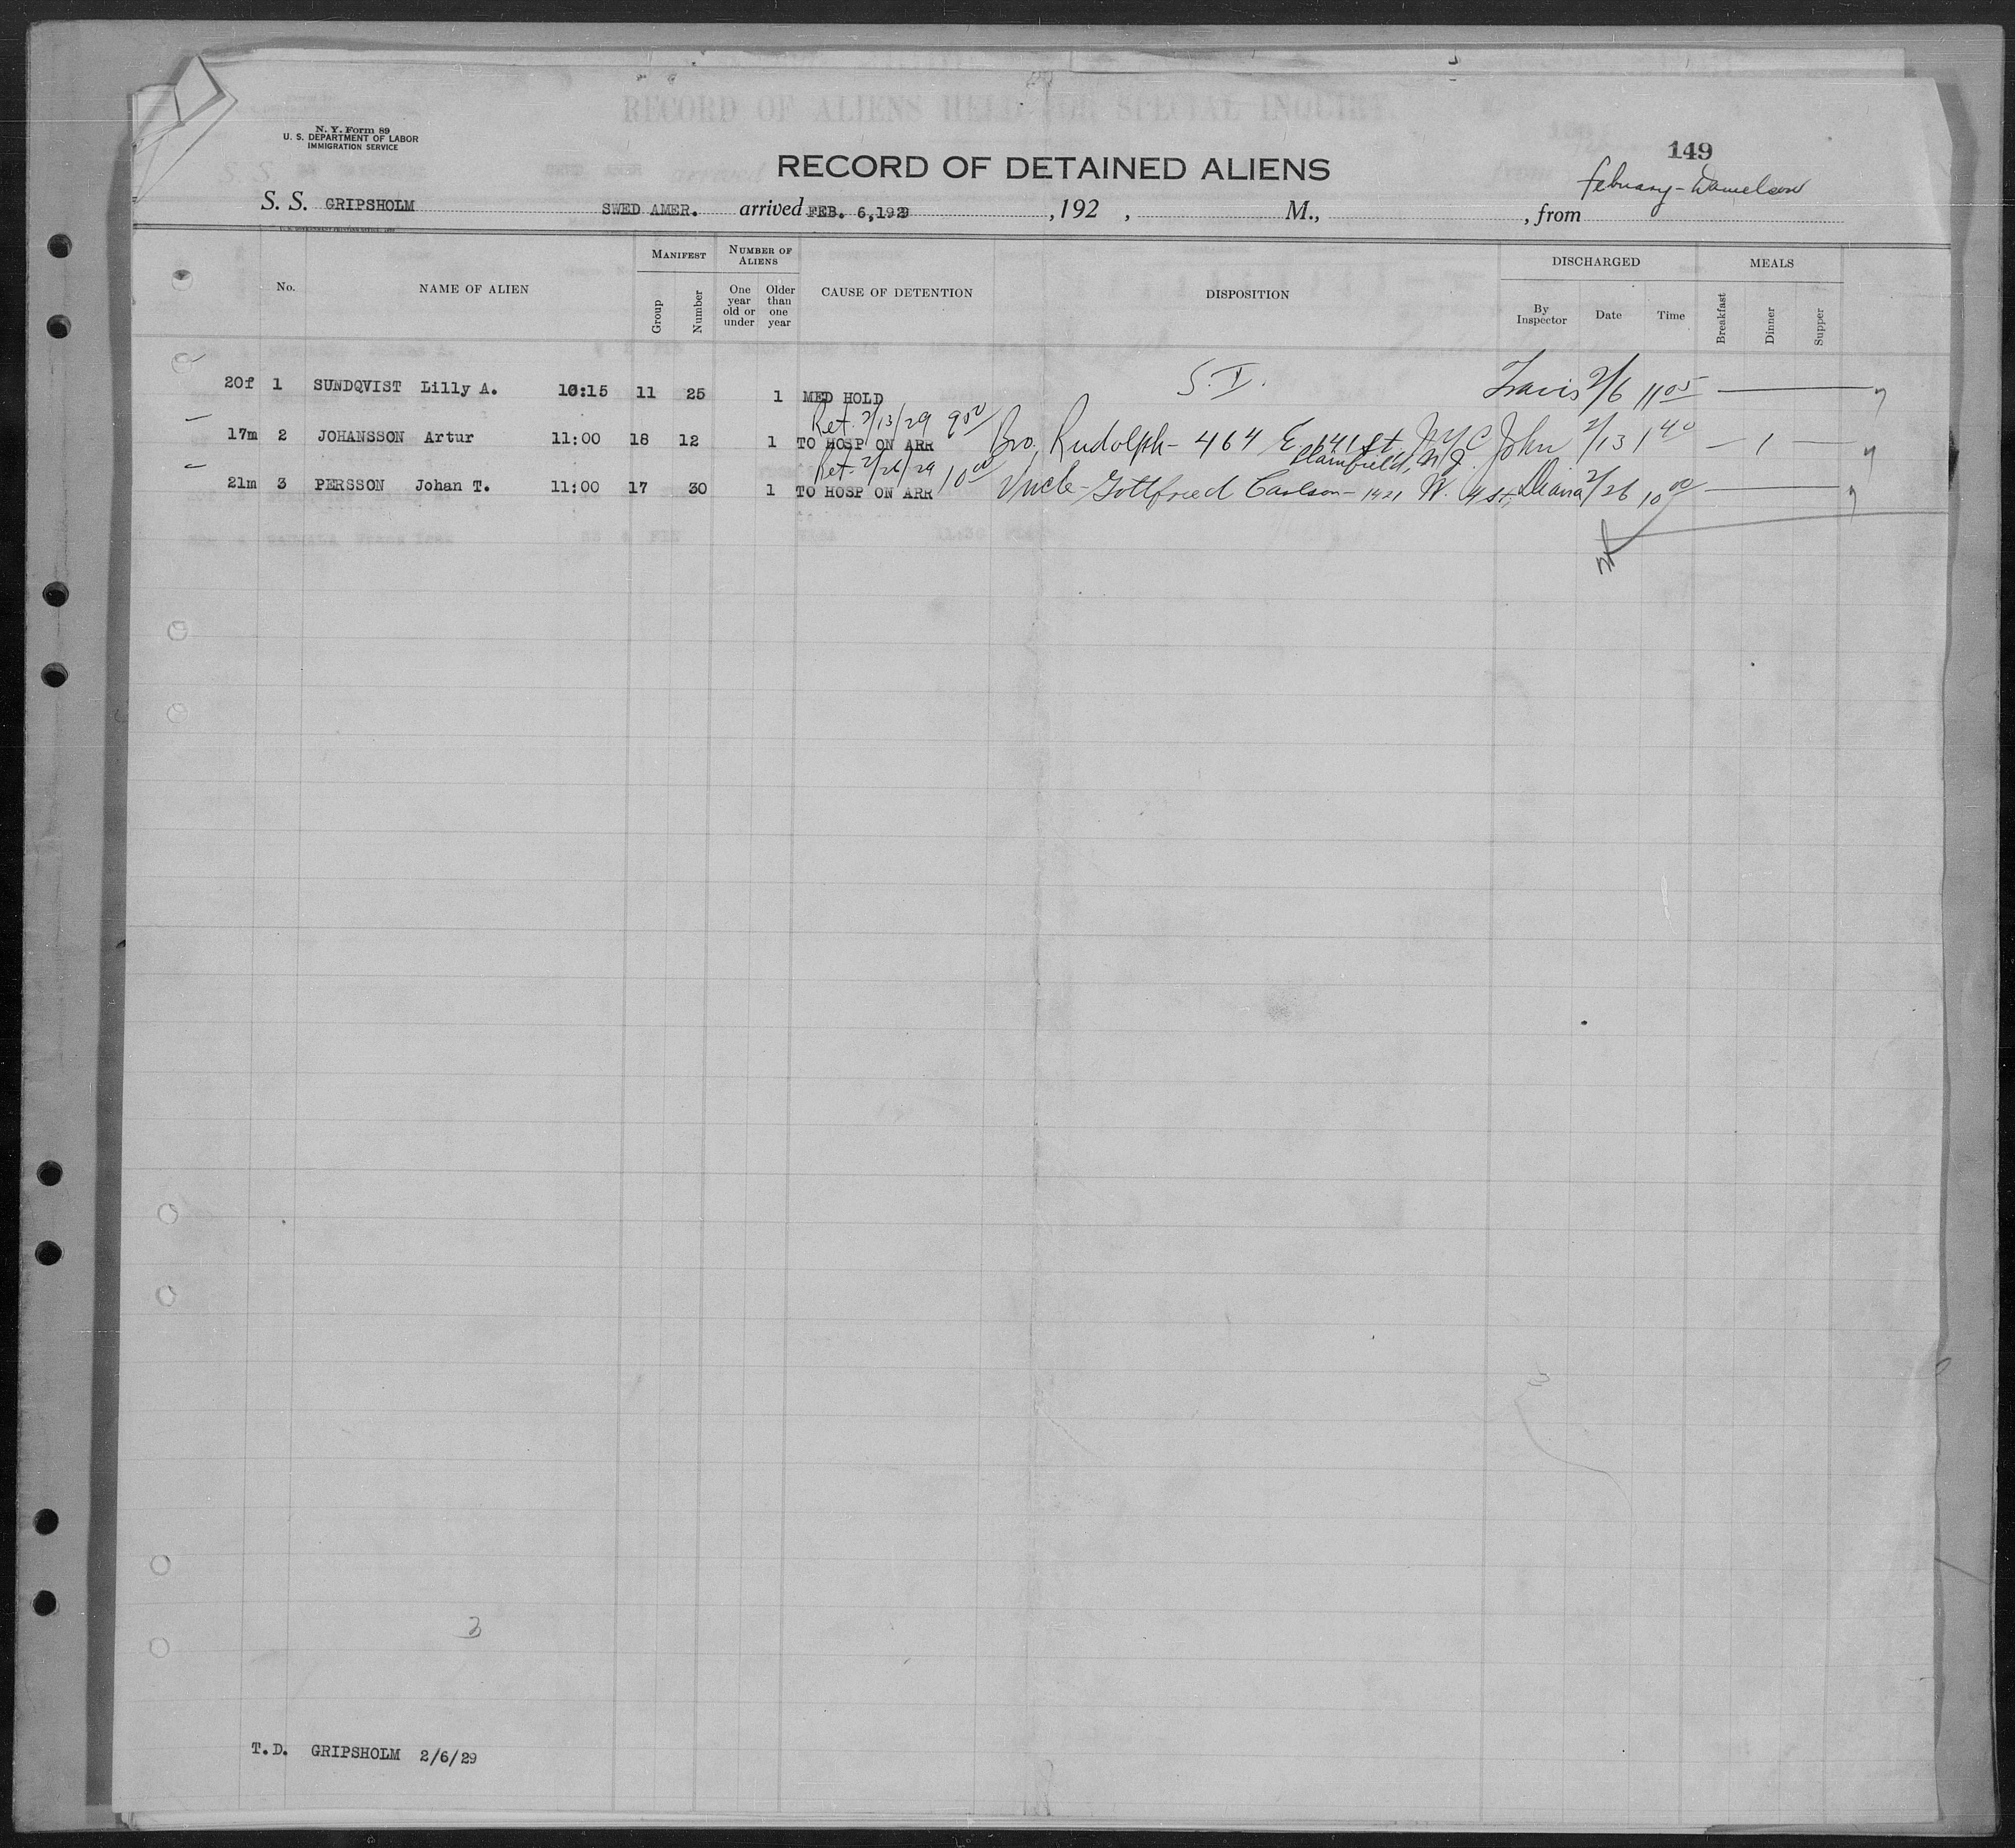 N. Y. Form 89
U. S. DEPARTMENT OF LABOR
IMMIGRATION SERVICE
RECORD OF ALIENS HELD FOR SPECIAL INQUIRY
149
RECORD OF DETAINED ALIENS
February - Danielson
S. S. GRIPSHOLM SWED AMER. arrived FEB. 6, 1929 , 192 , M., , from
No. NAME OF ALIEN MANIFEST NUMBER OF ALIENS CAUSE OF DETENTION DISPOSITION DISCHARGED MEALS
Group Number One year old or under Older than one year By Inspector Date Time Breakfast Dinner Supper
20f 1 SUNDQVIST Lilly A. 10:15 11 25 1 MED HOLD S. I. Travis 2/6 11 05
Ret. 2/13/29 9 00
17m 2 JOHANSSON Artur 11:00 18 12 1 TO HOSP ON ARR Bro, Rudolph - 464 E. 141 St. N.Y.C John 2/13 1 40 — 1 —
Ret. 2/26/29 10 00 Plainfield, N.J.
21m 3 PERSSON Johan T. 11:00 17 30 1 TO HOSP ON ARR Uncle - Gottfried Carlson - 1421 W. 4 St, 2/26 10 00
3
T.D. GRIPSHOLM 2/6/29